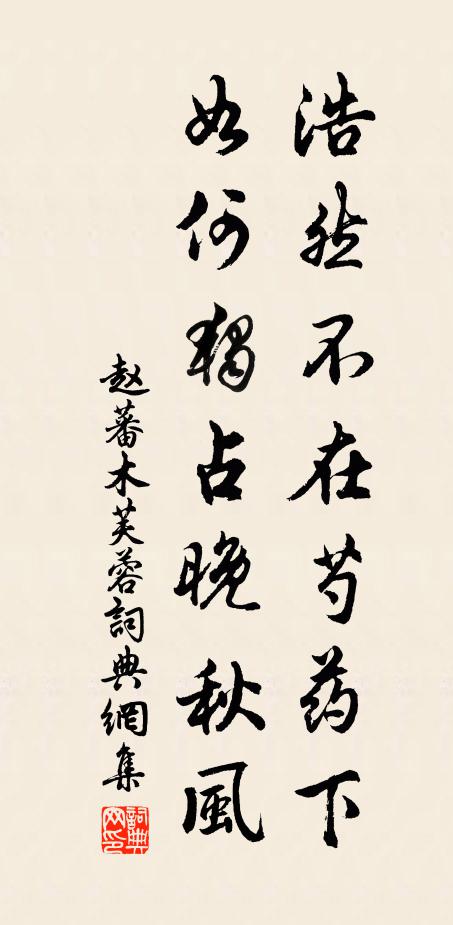 浩然不在芍药下
如何獨占晚秋風
赵蕃木芙蓉詞典網集
詞典网印